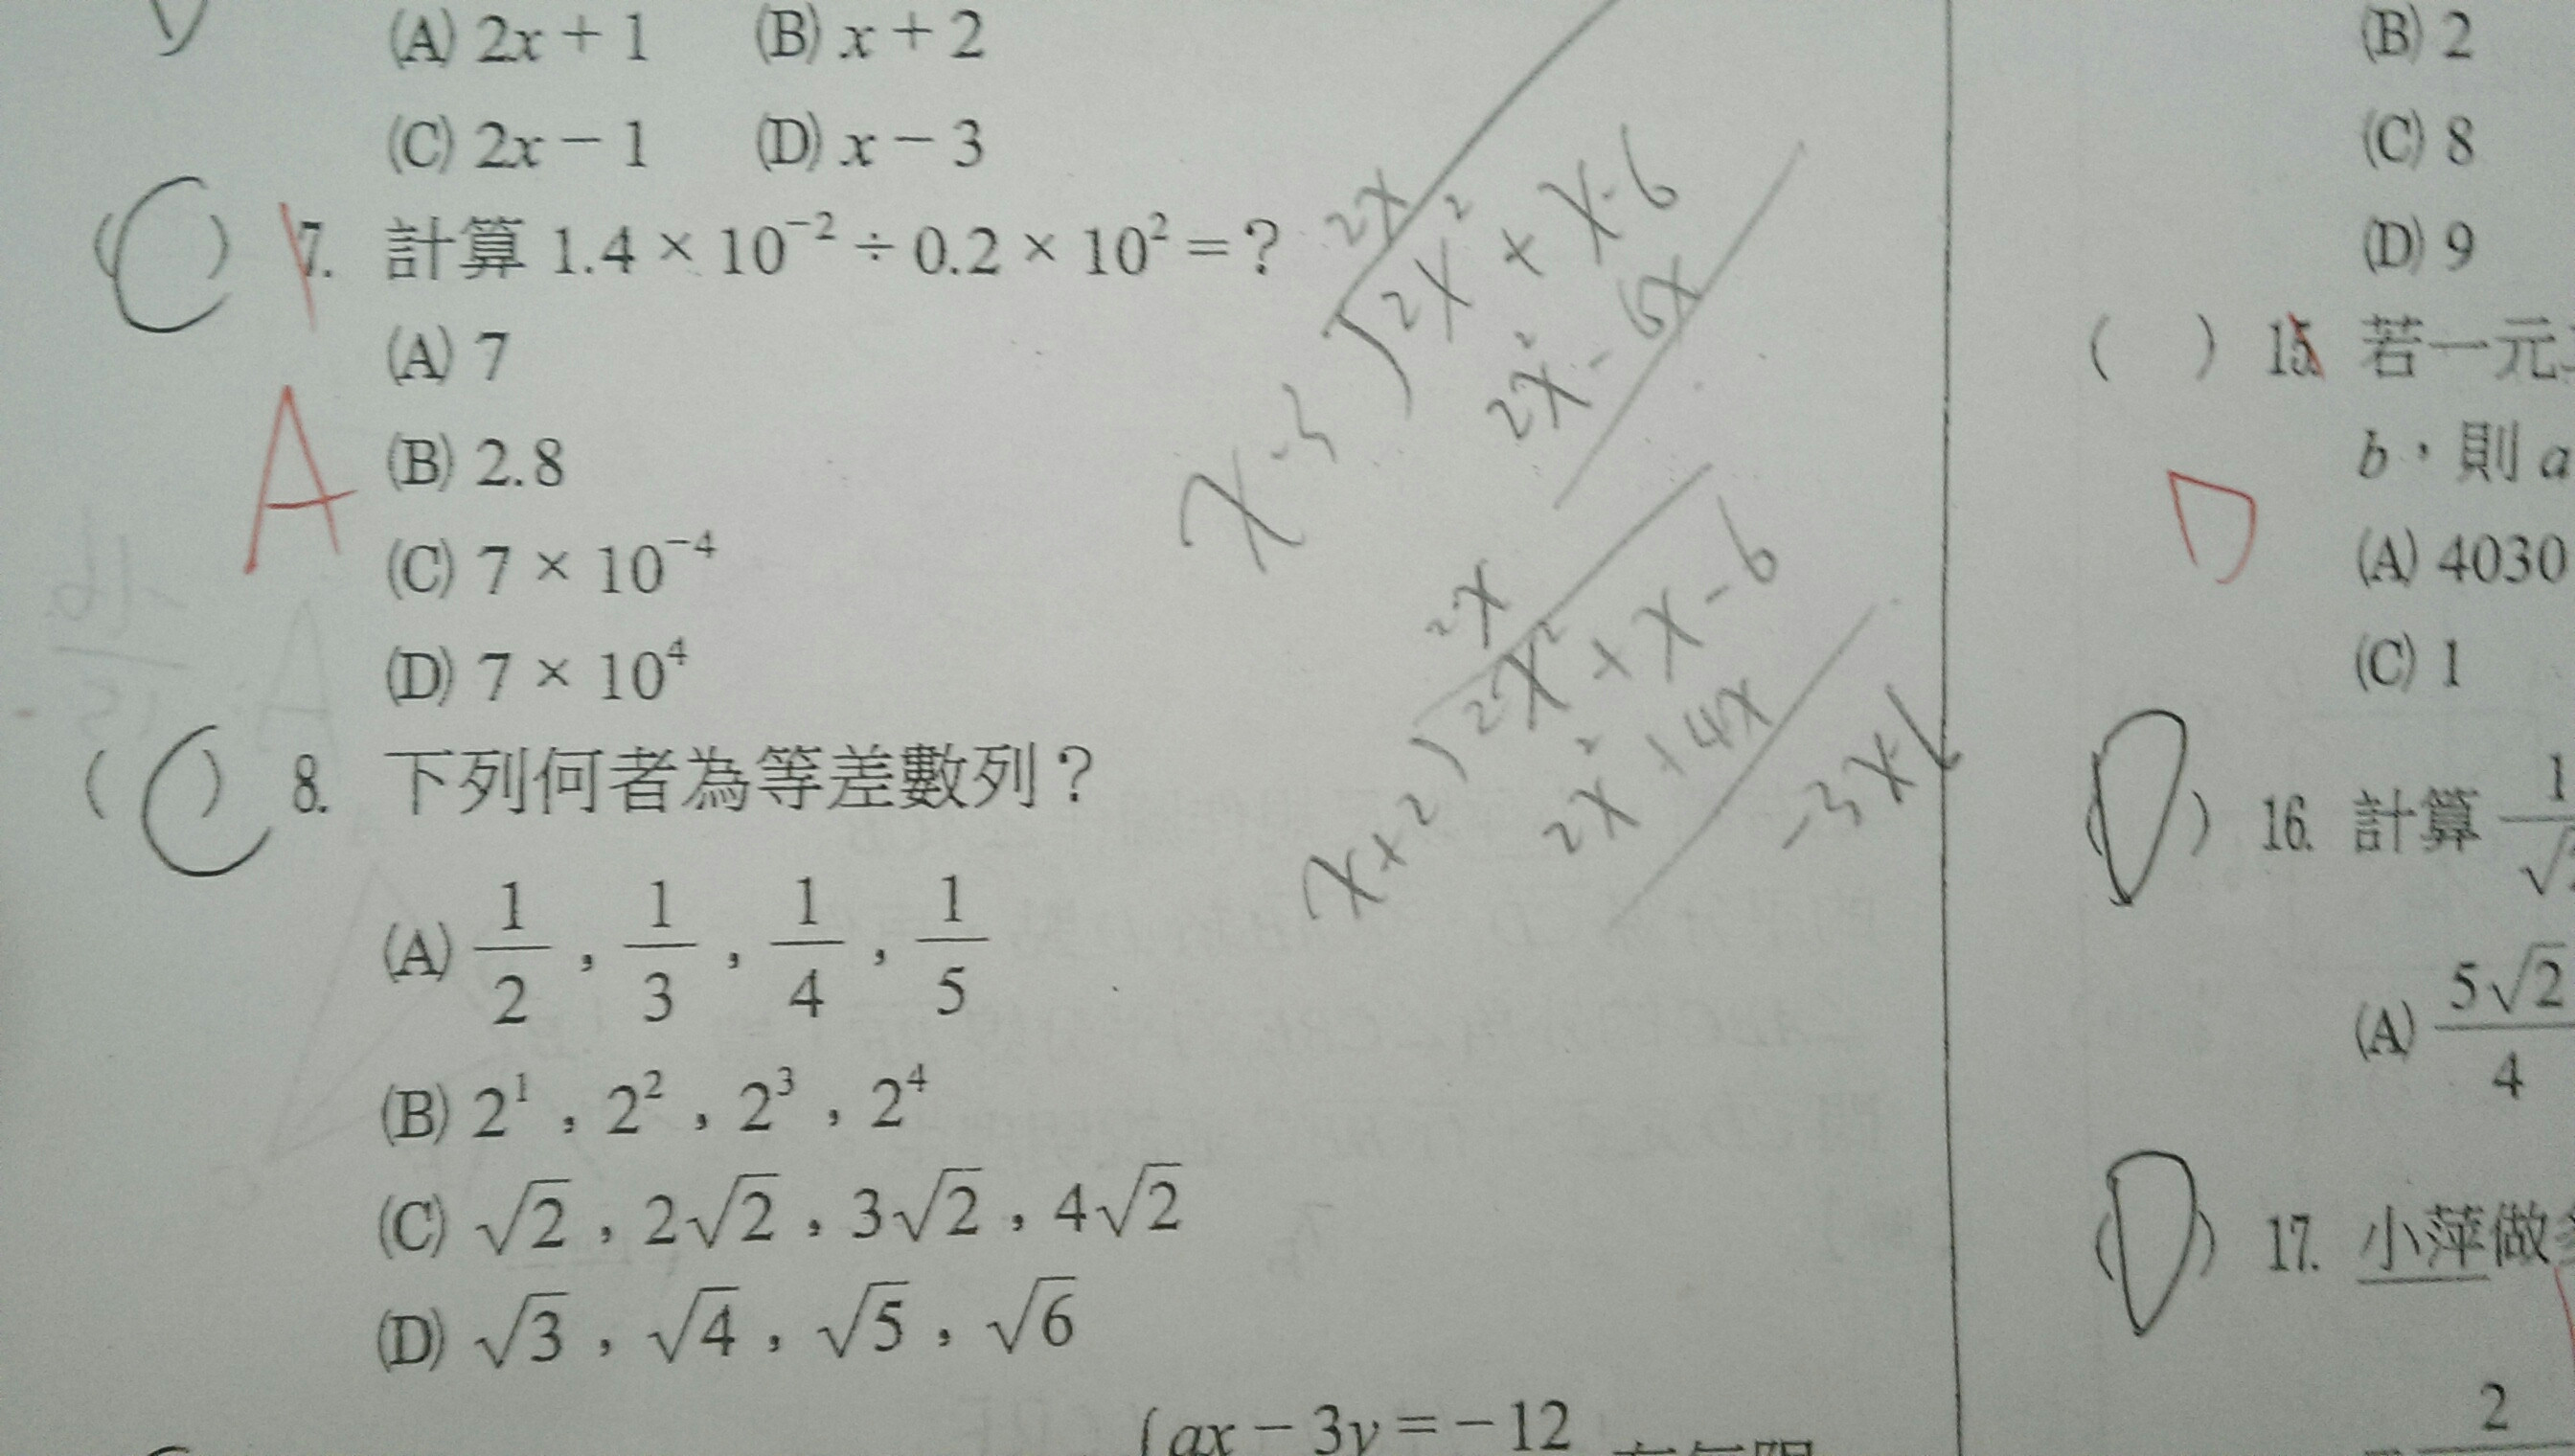 (A) 2x + 1 (B) x + 2
(C) 2x − 1 (D) x − 3
(C) 7. 計算 1.4 × 10⁻² ÷ 0.2 × 10² = ?
(A) 7
A
(B) 2.8
(C) 7 × 10⁻⁴
(D) 7 × 10⁴
(C) 8. 下列何者為等差數列？
(A) 1/2 , 1/3 , 1/4 , 1/5
(B) 2¹ , 2² , 2³ , 2⁴
(C) √2 , 2√2 , 3√2 , 4√2
(D) √3 , √4 , √5 , √6
ax − 3y = −12
2x
x-3 2x² + x-6
2x² - 6x
2x
x+2 2x² + x - 6
2x² + 4x
-3x-6
(B) 2
(C) 8
(D) 9
( ) 15. 若一元
b，則 a
D
(A) 4030
(C) 1
(D) 16. 計算 1
(A) 5√2/4
(D) 17. 小萍做
2